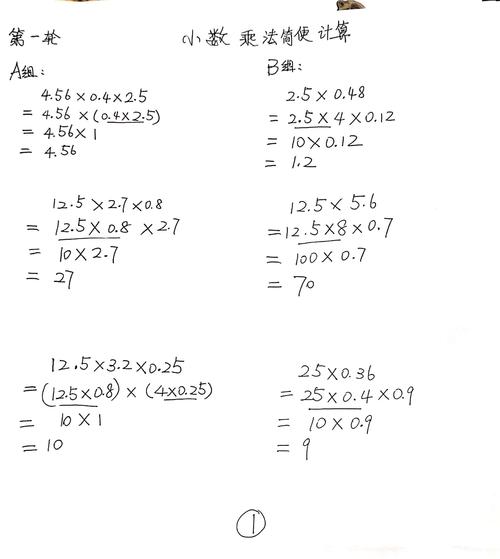 第一轮 小数乘法简便计算
A组:
4.56×0.4×2.5
=4.56×(0.4×2.5)
=4.56×1
=4.56
12.5×2.7×0.8
=12.5×0.8×2.7
=10×2.7
=27
12.5×3.2×0.25
=(12.5×0.8)×(4×0.25)
=10×1
=10
B组:
2.5×0.48
=2.5×4×0.12
=10×0.12
=1.2
12.5×5.6
=12.5×8×0.7
=100×0.7
=70
25×0.36
=25×0.4×0.9
=10×0.9
=9
①